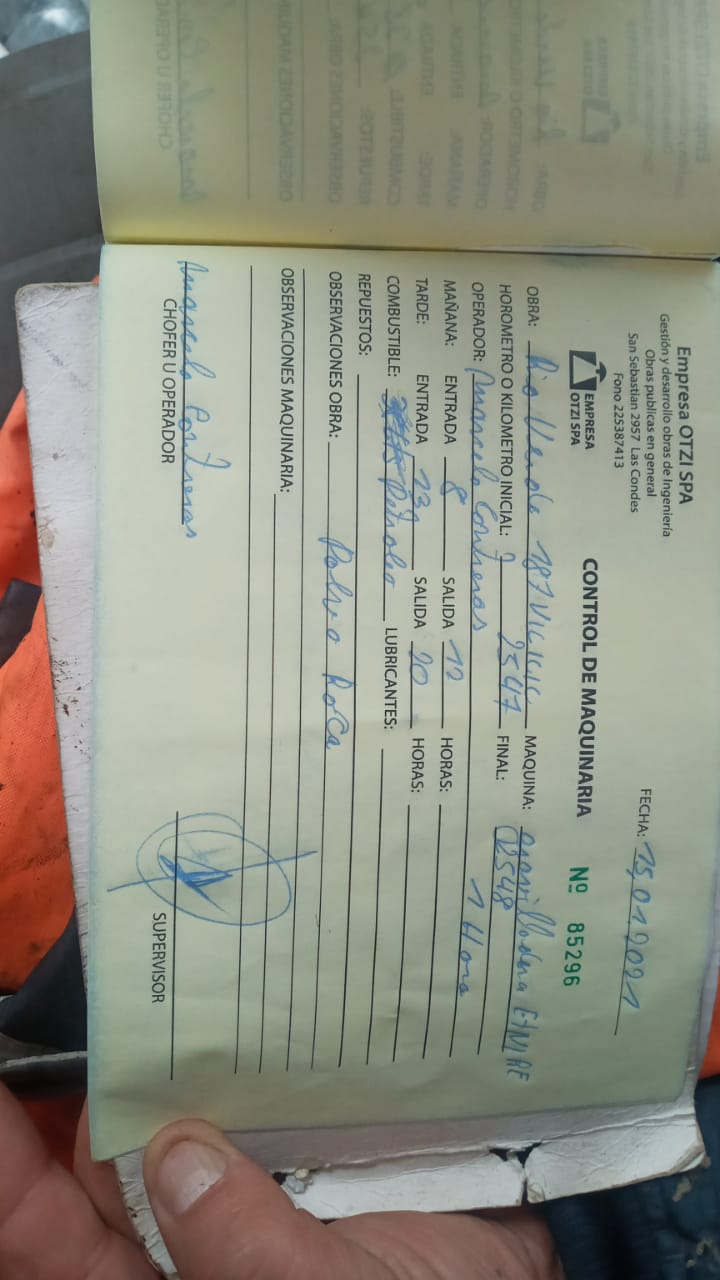 Empresa OTZI SPA
Gestión y desarrollo obras de Ingeniería
Obras publicas en general
San Sebastian 2957 Las Condes
Fono 225387413
EMPRESA
OTZI SPA
FECHA: 15,01 2021
CONTROL DE MAQUINARIA
Nº 85296
OBRA: Rio Verde 187 MAQUINA: gravilladora
HOROMETRO O KILOMETRO INICIAL: 2547 FINAL: 02548
OPERADOR: Marcelo Contreras 1 Hora
MAÑANA: ENTRADA 8 SALIDA 12 HORAS:
TARDE: ENTRADA 13 SALIDA 20 HORAS:
COMBUSTIBLE: Petroleo LUBRICANTES:
REPUESTOS:
OBSERVACIONES OBRA: Polvo Roca
OBSERVACIONES MAQUINARIA:
Marcelo Contreras
CHOFER U OPERADOR
SUPERVISOR